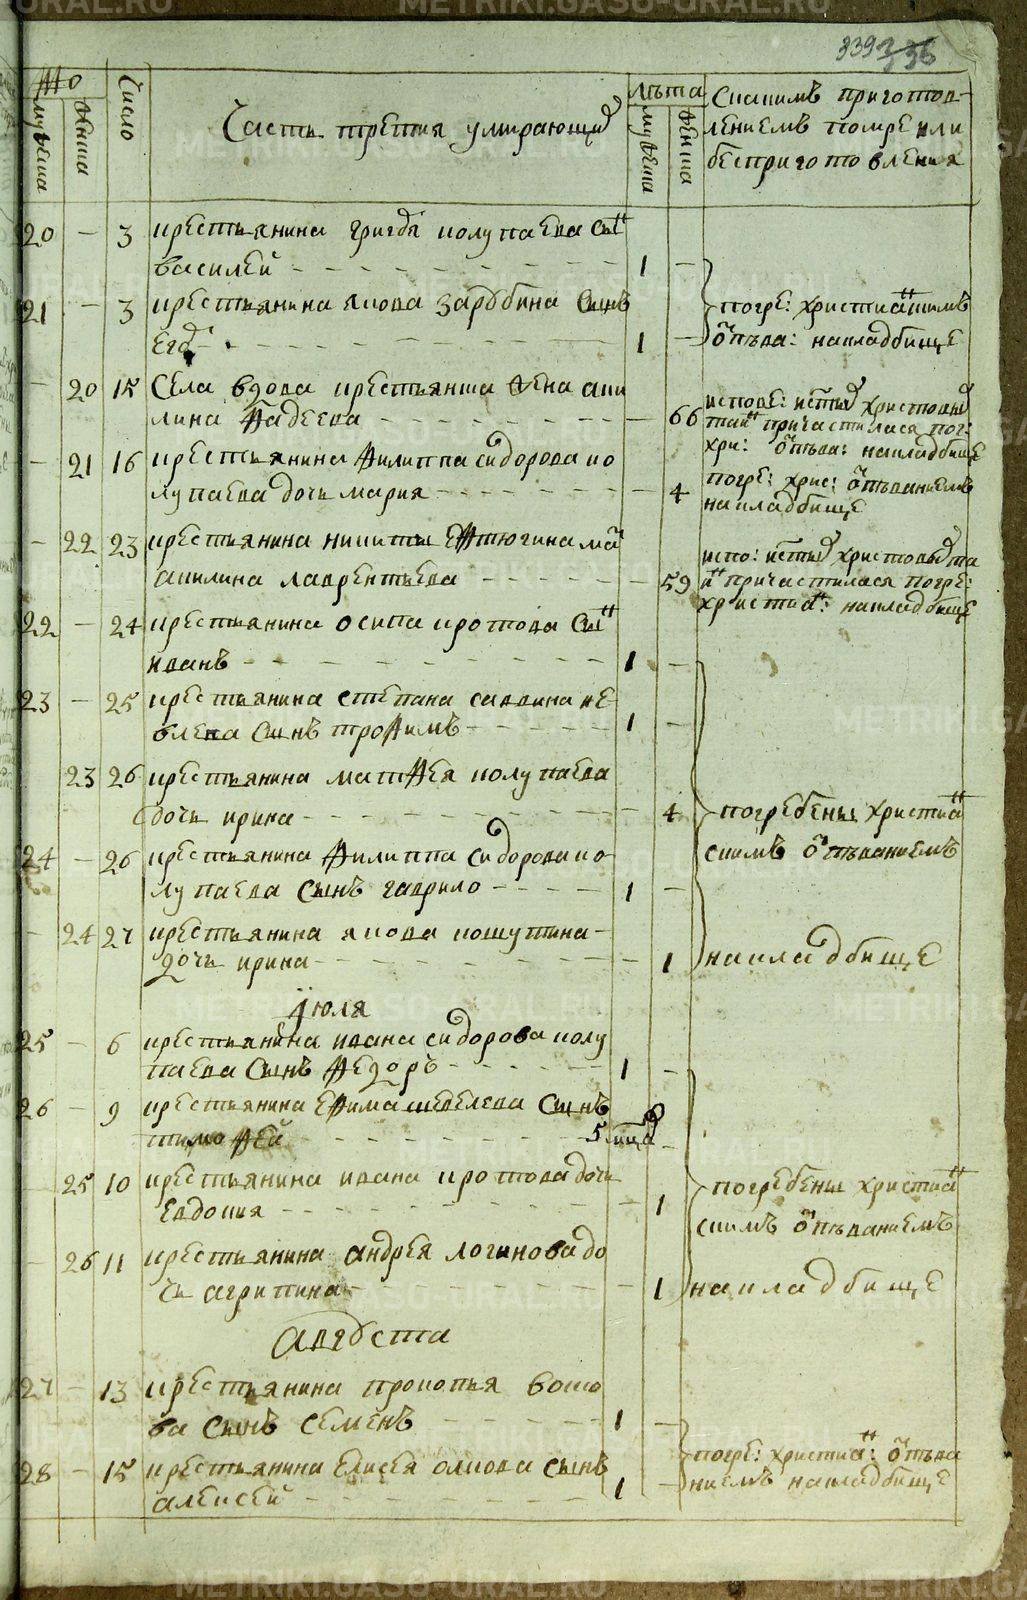 339 336
Что
мужеска
женска
Число
Часть третия умирающих
лѣта
мужеска
женска
Скакимъ приготов-
лениемъ помре или
бесприготовления
20 - 3 крестьянина Григоря полупаева сынъ
василей - 1 -
21 - 3 крестьянина якова зарубина сынъ
Егоръ - 1 -
погре: христианскимъ
отпева: накладбище
- 20 15 Села вдова крестьянска жена аки
лина Фадеева - 66
испове: и стыхъ христовыхъ
таинъ причастилася пог:
хри: отпева: накладбище
- 21 16 крестьянина Филиппа сидорова по
лупаева дочь мария - 4
погре: хрис: отпѣваниемъ
накладбище
- 22 23 крестьянина никиты мать
акилина лаврентьева - 59
испо: и стыхъ христовыхъ та
инъ причастилася погре:
христиан: накладбище
22 - 24 крестьянина осипа кротова сынъ
иванъ - 1 -
23 - 25 крестьянина степана саввина
сынъ трофимъ - 1 -
- 23 26 крестьянина матфея полупаева
дочь ирина - 4
погребены христиан
скимъ отпѣваниемъ
24 - 26 крестьянина Филиппа сидорова по-
лупаева сынъ гаврило - 1 -
- 24 27 крестьянина якова кошутина
дочь ирина - 1
накладбище
Июля
25 - 6 крестьянина ивана сидорова полу
паева сынъ Федоръ - 1 -
26 - 9 крестьянина Ефима шевелева сынъ
тимофей - 5
- 25 10 крестьянина ивана кротова дочь
Евдокия - 1
погребены христиан
скимъ отпѣваниемъ
- 26 11 крестьянина андрея логинова до
чь агрипина - 1
накладбище
Августа
27 - 13 крестьянина прокопья
ва сынъ семенъ - 1 -
28 - 15 крестьянина Елисея сынъ
алексей - 1 -
погре: христиан: отпѣва
ниемъ накладбище
METRIKI.GASO-URAL.RU